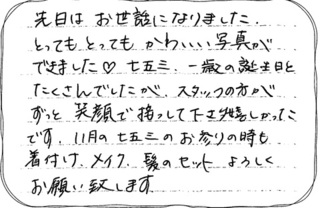 先日は お世話になりました.
とっても とっても かわいい 写真が
できました♡ 七五三. 一歳の誕生日と
たくさんでしたが. スタッフの方が
ずっと 笑顔で 接って下さ嬉しかった
です. 11月の 七五三の お参りの時も
着付け. メイク. 髪のセット よろしく
お願い致します